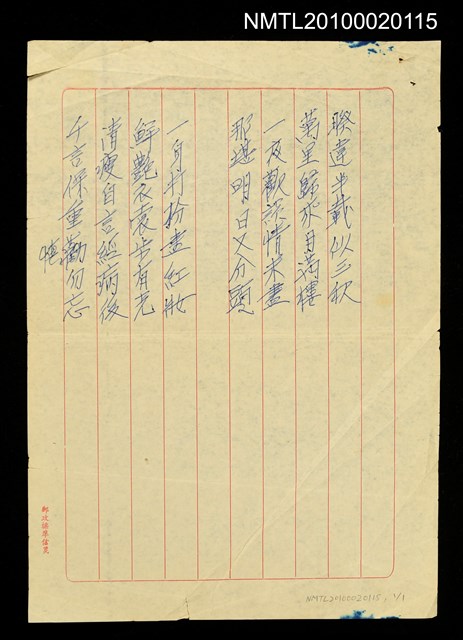 NMTL20100020115
睽違半載似三秋
萬里歸來月滿樓
一夜歡談情未盡
那堪明日又分頭
一身打扮盡紅妝
鮮艷衣裳步有光
清瘦自言經病後
千言保重勸勿忘
郵政標準信箋
NMTL20100020115, 1/1